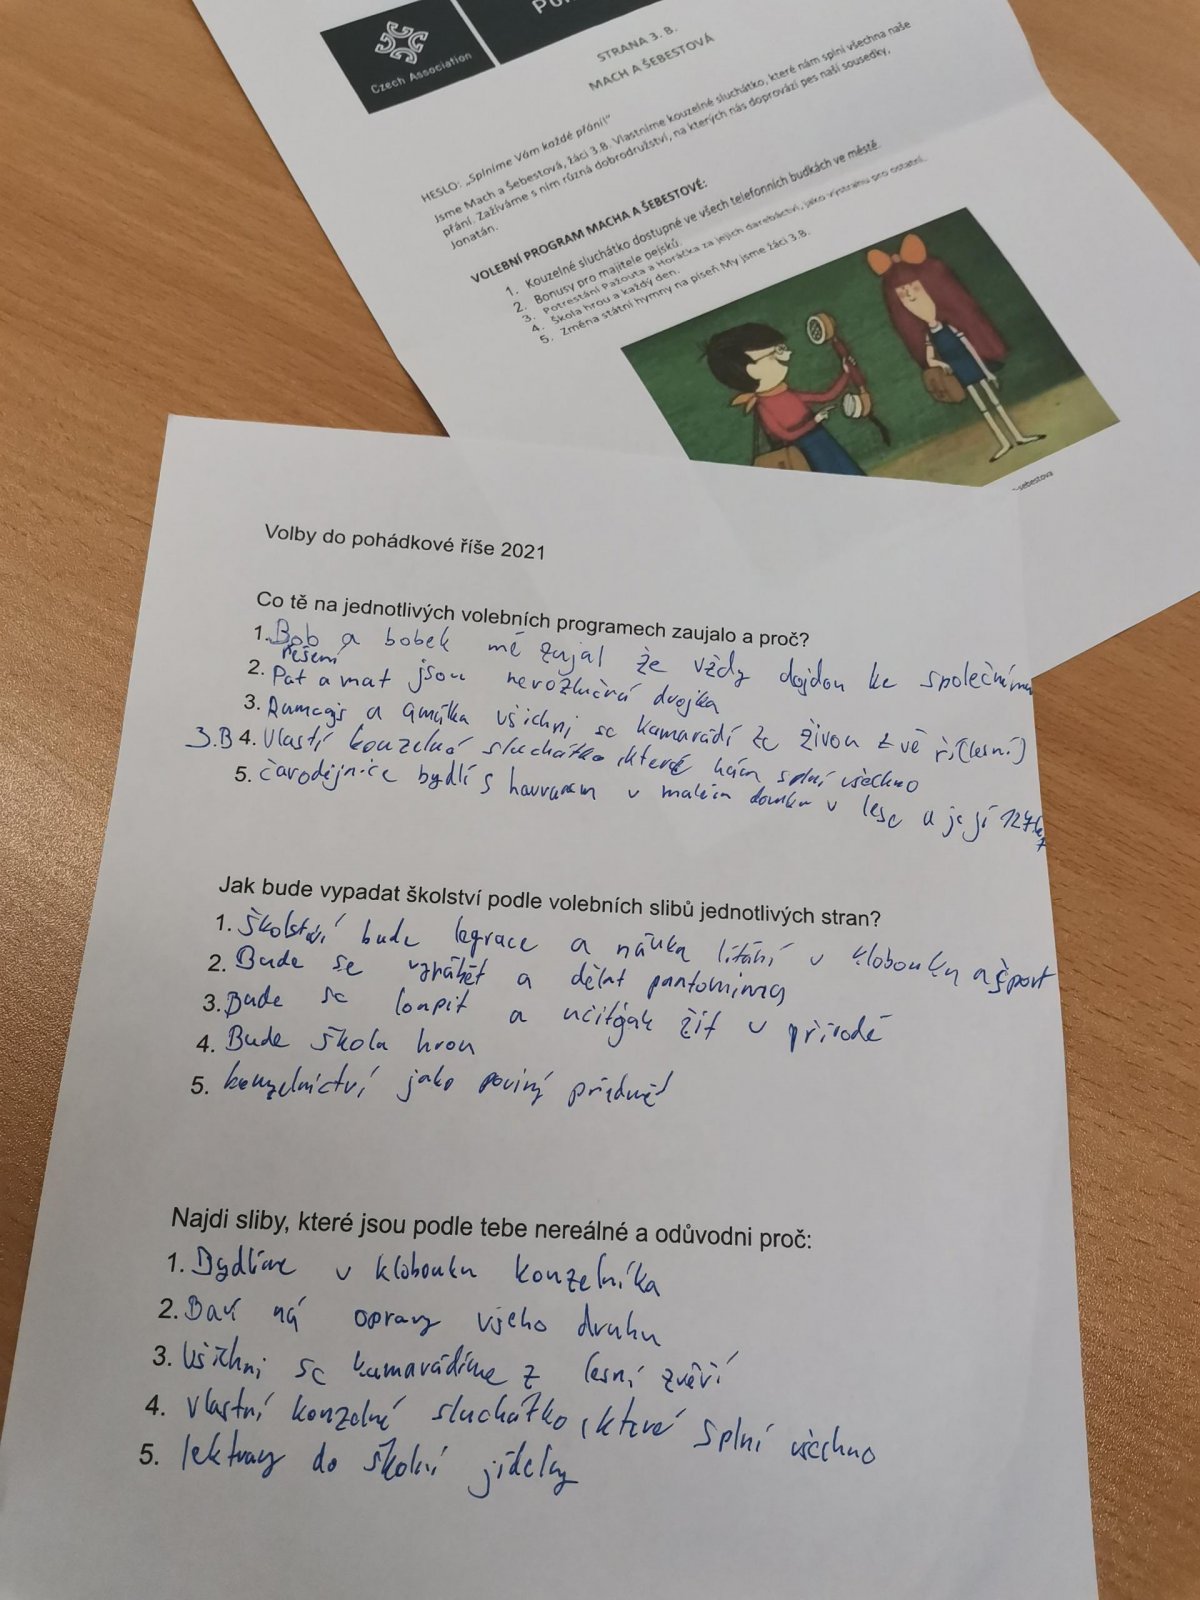 Czech Association
STRANA 3. B.
MACH A ŠEBESTOVÁ
HESLO: „Splníme Vám každé přání!“
Jsme Mach a Šebestová, žáci 3.B. Vlastníme kouzelné sluchátko, které nám splní všechna naše
přání. Zažíváme s ním různá dobrodružství, na kterých nás doprovází pes naší sousedky,
Jonatán.
VOLEBNÍ PROGRAM MACHA A ŠEBESTOVÉ:
1. Kouzelné sluchátko dostupné ve všech telefonních budkách ve městě.
2. Bonusy pro majitele pejsků.
3. Potrestání Pažouta a Horáčka za jejich darebáctví, jako výstrahu pro ostatní.
4. Škola hrou a každý den.
5. Změna státní hymny na píseň My jsme žáci 3.B.
Volby do pohádkové říše 2021
Co tě na jednotlivých volebních programech zaujalo a proč?
1. Bob a bobek mě zujal že vždy dojdou ke společnímu
řešení
2. Pat a mat jsou nerozlučná dvojka
3. Rumcajs a všichni se kamarádí ze živou zvě ří(lesní)
3.B 4. Vlastí kouzelné sluchátko, které nám splní všechno
5. čarodějnice bydlí s havranem v malém domku v lese a je jí 127let
Jak bude vypadat školství podle volebních slibů jednotlivých stran?
1. Školství bude legrace a náuka lítání v klobouku a šport
2. Bude se vyrábět a dělat pantomimy
3. Bude se loupit a učit jak žít v přírodě
4. Bude škola hrou
5. kouzelnictví jako poviný předmět
Najdi sliby, které jsou podle tebe nereálné a odůvodni proč:
1. Bydlíme v klobouku kouzelníka
2. Baví ná opravy všeho druhu
3. Všichni se kamarádíme z lesní zvěří
4. vlastní kouzelné sluchátko, které splní všechno
5. lektvary do školní jídelny